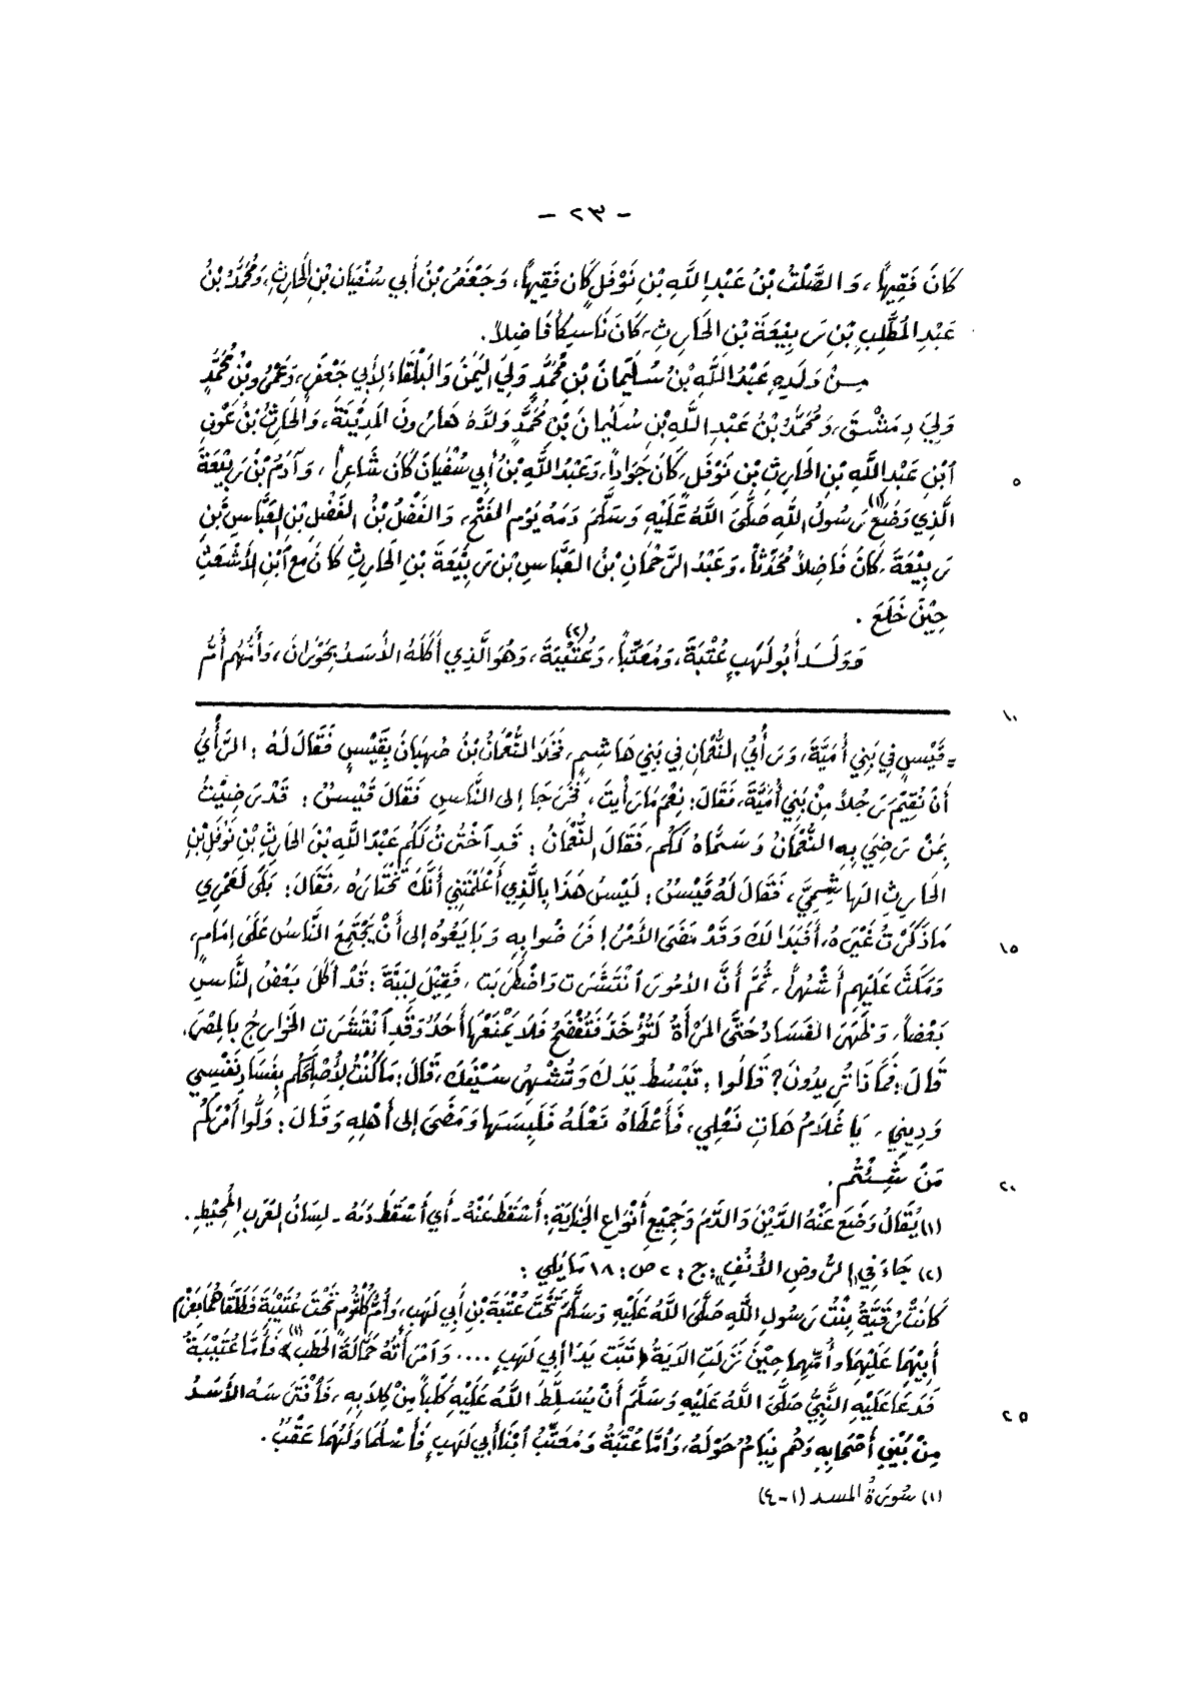 - ٢٣ -
كَانَ فَقِيهاً، وَالصَّلْتُ بْنُ عَبْدِ اللَّهِ بْنِ نَوْفَلٍ كَانَ فَقِيهاً، وَجَعْفَرُ بْنُ أَبِي سُفْيَانَ بْنِ الحَارِثِ، وَمُحَمَّدُ بْنُ
عَبْدِ المُطَّلِبِ بْنِ رَبِيْعَةَ بْنِ الحَارِثِ، كَانَ نَاسِكاً فَاضِلاً.
مِنْ وَلَدِهِ عَبْدُ اللَّهِ بْنُ سُلَيْمَانَ بْنِ مُحَمَّدٍ وَلِيَ اليَمَنَ وَالبَلْقَاءَ لِأَبِي جَعْفَرٍ، وَعَمْرُو بْنُ مُحَمَّدٍ
وَلِيَ دِمَشْقَ، وَمُحَمَّدُ بْنُ عَبْدِ اللَّهِ بْنِ سُلَيْمَانَ بْنِ مُحَمَّدٍ وَلَّاهُ هَارُونَ المَدِيْنَةَ، وَالحَارِثُ بْنُ عَوْنِ
ٱبْنِ عَبْدِ اللَّهِ بْنِ الحَارِثِ بْنِ نَوْفَلٍ، كَانَ جَوَاداً، وَعَبْدُ اللَّهِ بْنُ أَبِي سُفْيَانَ كَانَ شَاعِراً، وَآدَمُ بْنُ رَبِيْعَةَ
٥
الَّذِي وَضَعَ(١) رَسُولُ اللَّهِ صَلَّىَ اللَّهُ عَلَيْهِ وَسَلَّمَ دَمَهُ يَوْمَ الفَتْحِ، وَالفَضْلُ بْنُ الفَضْلِ بْنِ العَبَّاسِ بْنِ
رَبِيْعَةَ، كَانَ فَاضِلاً مُحَدِّثاً، وَعَبْدُ الرَّحْمَانِ بْنُ العَبَّاسِ بْنِ رَبِيْعَةَ بْنِ الحَارِثِ كَانَ مَعَ ٱبْنِ الأَشْعَثِ
حِيْنَ خَلَعَ.
وَوَلَدَ أَبُو لَهَبٍ عُتْبَةَ، وَمُعَتِّباً، وَعُتَيْبَةَ(٢)، وَهُوَ الَّذِي أَكَلَهُ الأَسَدُ بِحَوْرَانَ، وَأُمُّهُم أُمُّ
١٠
= قَيْسٍ فِي بَنِي أُمَيَّةَ، وَرَأْيُ النُّعْمَانِ فِي بَنِي هَاشِمٍ، فَخَلَا النُّعْمَانُ بْنُ صُهْبَانَ بِقَيْسٍ فَقَالَ لَهُ: الرَّأْيُ
أَنْ نُقِيْمَ رَجُلاً مِنْ بَنِي أُمَيَّةَ، فَقَالَ: نِعْمَ مَا رَأَيتَ، فَخَرَجَا إلى النَّاسِ فَقَالَ قَيْسٌ: قَدْ رَضِيْتُ
بِمَنْ رَضِيَ بِهِ النُّعْمَانُ وَسَمَّاهُ لَكُم، فَقَالَ النُّعْمَانُ: قَدِ ٱخْتَرْتُ لَكُم عَبْدَ اللَّهِ بْنَ الحَارِثِ بْنِ نَوْفَلِ بْنِ
الحَارِثِ الهَاشِمِيَّ، فَقَالَ لَهُ قَيْسٌ: لَيْسَ هَذَا بِالَّذِي أَعْلَمْتَنِي أَنَّكَ تَخْتَارُهُ، فَقَالَ: بَلَى لَعَمْرِي
مَا ذَكَرْتُ غَيْرَهُ، أَفَبَدَا لَكَ وَقَدْ مَضَى الأَمْرُ! فَرَضُوا بِهِ وَبَايَعُوهُ إلى أَنْ يَجْتَمِعَ النَّاسُ عَلَى إمَامٍ،
١٥
وَمَكَثَ عَلَيْهِم أَشْهُراً، ثُمَّ أَنَّ الأُمُورَ ٱنْتَشَرَت وَاضْطَرَبَت، فَقِيْلَ لِبَبَّةَ: قَدْ أَكَلَ بَعْضُ النَّاسِ
بَعْضاً، وَظَهَرَ الفَسَادُ حَتَّى المَرْأَةُ لَتُؤْخَذُ فَتُفْضَحُ فَلَا يَمْنَعُهَا أَحَدٌ وَقَدِ ٱنْتَشَرَت الخَوَارِجُ بِالمِصْرِ،
قَالَ: فَمَاذَا تُرِيدُونَ؟ قَالُوا: تَبْسُطُ يَدَكَ وَتُشْهِرُ سَيْفَكَ، قَالَ: مَا كُنْتُ لِأُصْلِحَكُم بِفَسَادِ نَفْسِي
وَدِيني، يَا غُلَامُ هَاتِ نَعْلِي، فَأَعْطَاهُ نَعْلَهُ فَلَبِسَهَا وَمَضَى إلى أَهْلِهِ وَقَالَ: وَلُّوا أَمْرَكُم
مَنْ شِئْتُم.
٢٠
(١) يُقَالُ وَضَعَ عَنْهُ الدَّيْنَ وَالدَّمَ وَجَمِيْعِ أَنْوَاعِ الجِنَايَةِ: أَسْقَطَ عَنْهُ - أَي أَسْقَطَ دَمَهُ - لِسَانُ العَرَبِ المُحِيْطِ.
(٢) جَاءَ فِي "الرَّوضِ الأُنُفِ": ج: ٢ ص: ١٨ مَا يَلي:
كَانَتْ رُقَيَّةُ بِنْتُ رَسُولِ اللَّهِ صَلَّى اللَّهُ عَلَيْهِ وَسَلَّمَ تَحْتَ عُتْبَةَ بْنِ أَبِي لَهَبٍ، وَأُمُّ كُلْثُومٍ تَحْتَ عُتَيْبَةَ فَطَلَّقَاهُمَا بِعَزْمِ
أَبِيْهِمَا عَلَيْهِمَا وَأُمِّهِما حِيْنَ نَزَلَتِ الآيَةُ ﴿تَبَّتْ يَدَا أَبِي لَهَبٍ .... وَامْرَأَتُهُ حَمَّالَةَ الحَطَبِ﴾(١) فَأَمَّا عُتَيْبَةُ
فَدَعَا عَلَيْهِ النَّبِيُّ صَلَّىَ اللَّهُ عَلَيْهِ وَسَلَّمَ أَنْ يُسَلِّطَ اللَّهُ عَلَيْهِ كَلْباً مِنْ كِلَابِهِ، فَٱفْتَرَسَهُ الأَسَدُ
٢٥
مِنْ بَيْنِ أَصْحَابِهِ وَهُم نِيَامٌ حَوْلَهُ، وَأَمَّا عُتْبَةُ وَمُعَتِّبُ ٱبْنَا أَبِي لَهَبٍ فَأَسْلَمَا وَلَهُمَا عَقْبٌ.
(١) سُورَةُ المسد (١-٤)